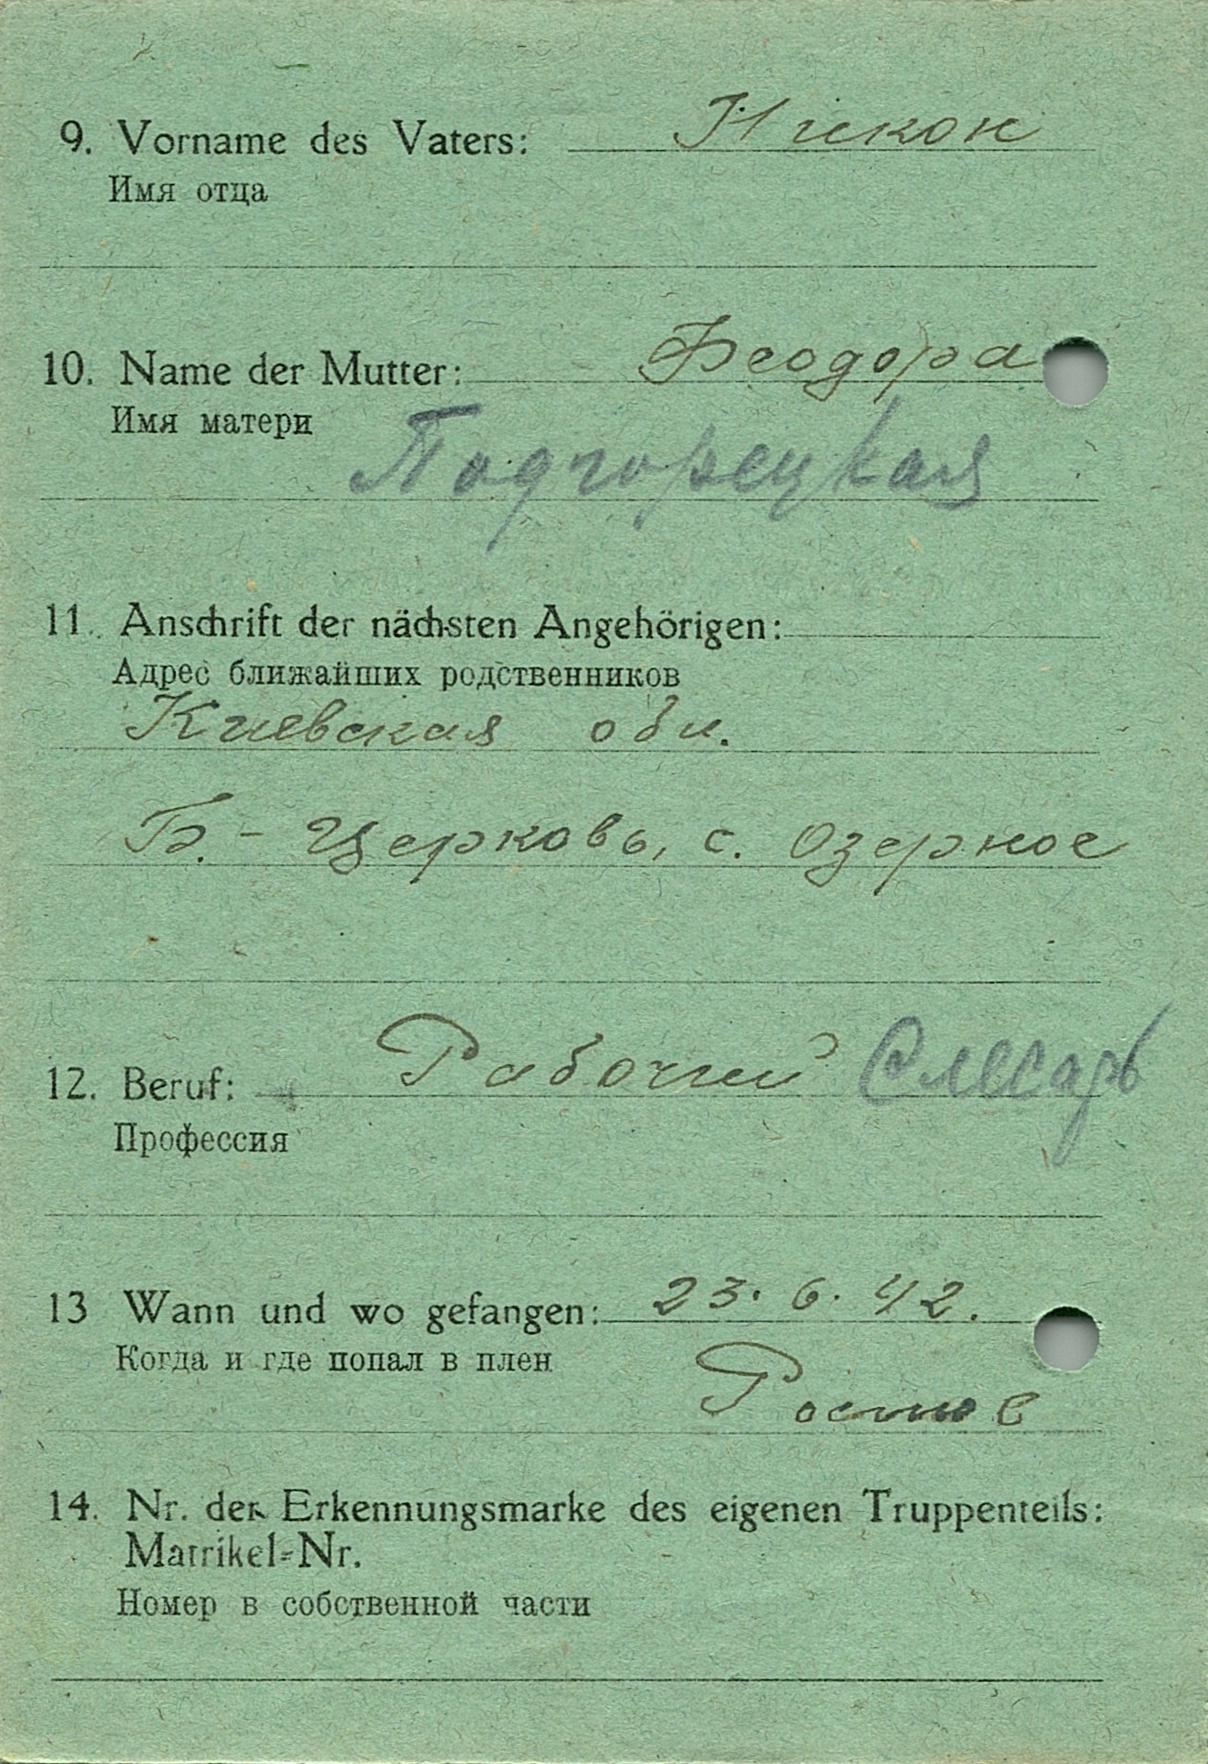 9. Vorname des Vaters: Никон
Имя отца
10. Name der Mutter: Феодора
Имя матери
Подгорецкая
11. Anschrift der nächsten Angehörigen:
Адрес ближайших родственников
Киевская обл.
Б.- Церковь, с. Озерное
12. Beruf: Рабочий Слесарь
Профессия
13 Wann und wo gefangen: 23. 6. 42.
Когда и где попал в плен
Ростов
14. Nr. der Erkennungsmarke des eigenen Truppenteils:
Matrikel-Nr.
Номер в собственной части